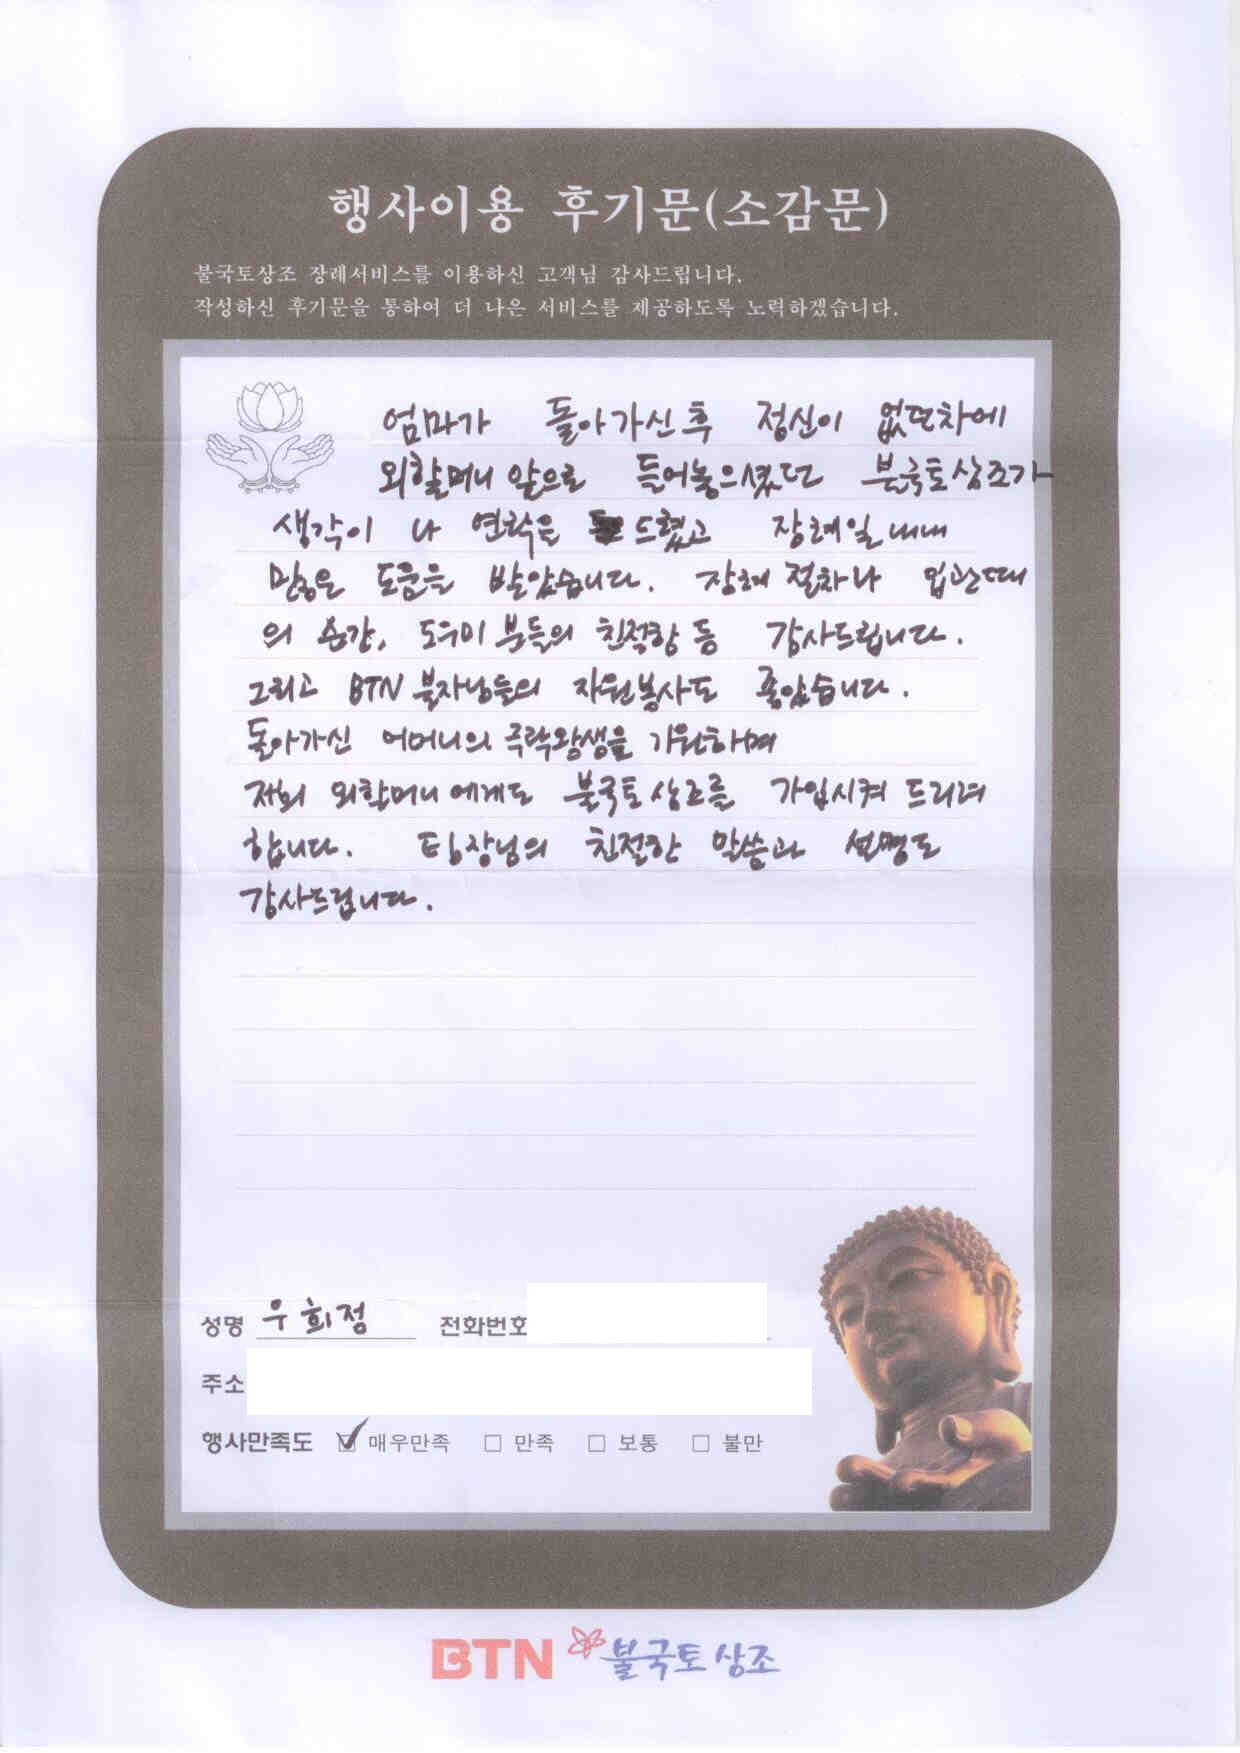 행사이용 후기문(소감문)
불국토상조 장례서비스를 이용하신 고객님 감사드립니다.
작성하신 후기문을 통하여 더 나은 서비스를 제공하도록 노력하겠습니다.
엄마가 돌아가신후 정신이 없던차에
외할머니 앞으로 들어놓으셨던 불국토상조가
생각이 나 연락을 드렸고 장례일내내
많은 도움을 받았습니다. 장례 절차나 입관때
의 순간, 도우미 분들의 친절함 등 감사드립니다.
그리고 BTN 불자님들의 자원봉사도 좋았습니다.
돌아가신 어머니의 극락왕생을 기원하며
저희 외할머니에게도 불국토상조를 가입시켜 드리려
합니다. 팀장님의 친절한 말씀과 설명도
감사드립니다.
성명 우희정 전화번호
주소
행사만족도 매우만족 만족 보통 불만
BTN 불국토상조